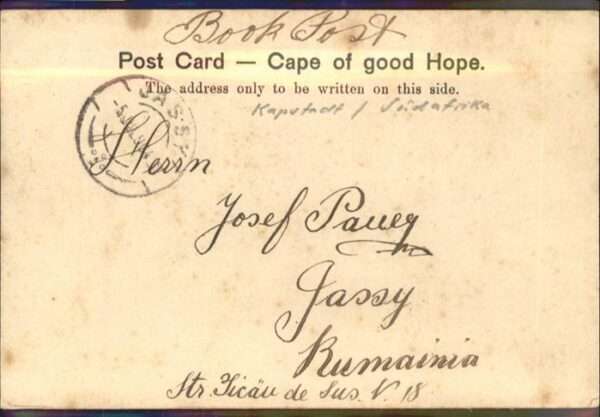 Book Post
Post Card — Cape of good Hope.
The address only to be written on this side.
Kapstadt / Südafrika
JASSY
Herrn
Josef
Jassy
Rumainia
Str. de Sus. N. 18